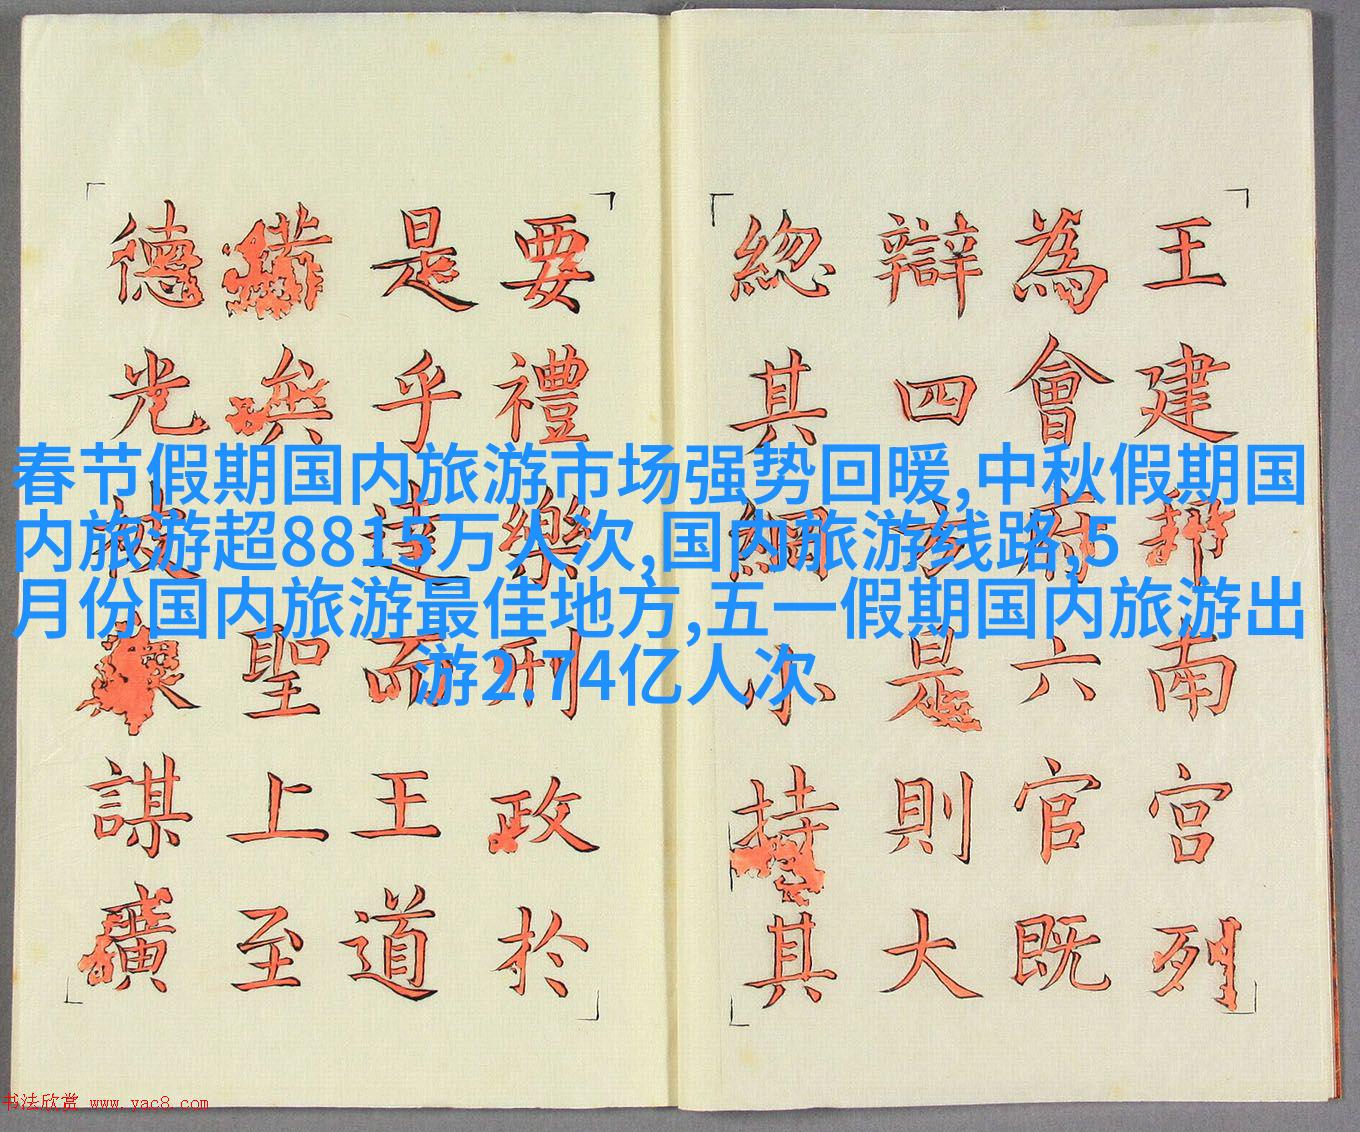 春节假期国内旅游市场强势回暖,中秋假期国
内旅游超8815万人次,国内旅游线路,5
月份国内旅游最佳地方,五一假期国内旅游出
游2.74亿人次
王建邦南宮列
為會府六官既
辯四方是則大
總其綱小持其
要禮樂刑政於
是乎達而王道
矣聖上至
德光被謀
书法欣赏 www.yac8.com